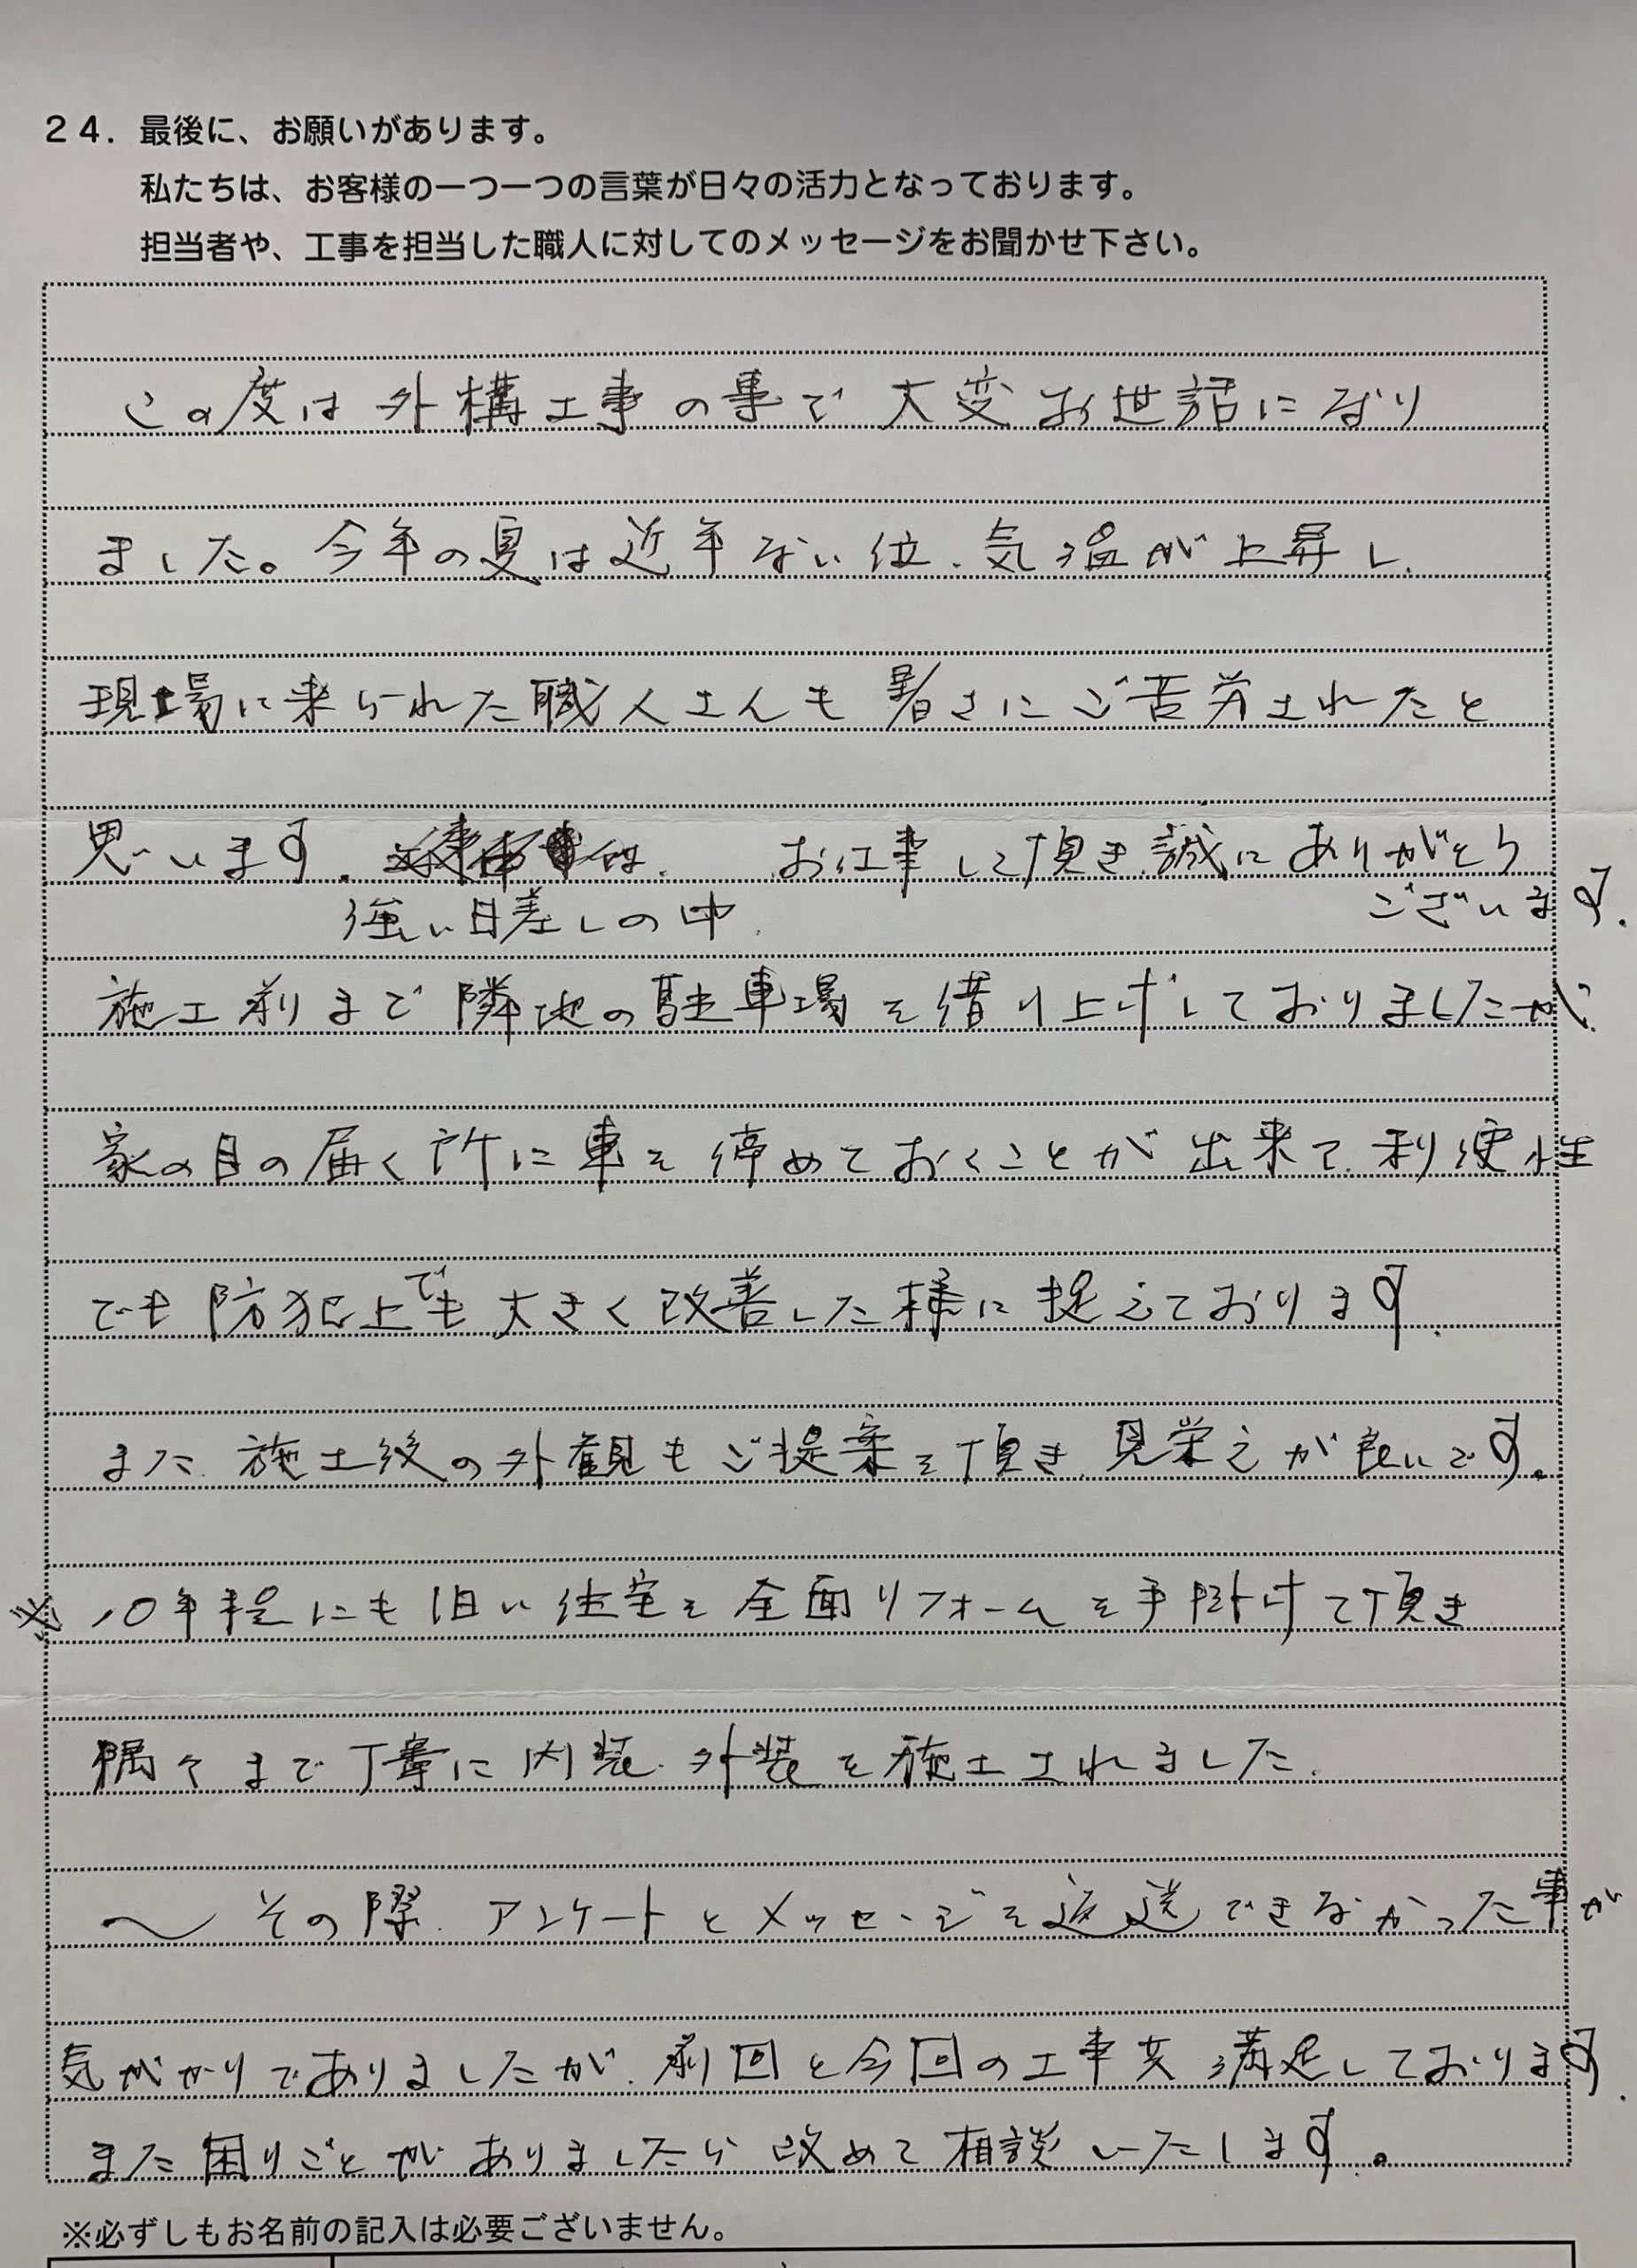 ２４．最後に、お願いがあります。
私たちは、お客様の一つ一つの言葉が日々の活力となっております。
担当者や、工事を担当した職人に対してのメッセージをお聞かせ下さい。
この度は外構工事の事で大変お世話になり
ました。今年の夏は近年ない位、気温が上昇し、
現場に来られた職人さんも暑さにご苦労されたと
思います。お仕事して頂き、誠にありがとう
強い日差しの中、ございます。
施工前まで隣地の駐車場を借り上げしておりましたが、
家の目の届く所に車を停めておくことが出来て、利便性
でも防犯上でも大きく改善した様に捉えております。
また、施工後の外観もご提案を頂き、見栄えが良いです。
※10年程にも旧い住宅を全面リフォームを手掛けて頂き
隅々まで丁寧に内装、外装を施工されました。
〜その際、アンケートとメッセージを返送できなかった事が
気がかりでありましたが、前回と今回の工事共満足しております。
また困りごとがありましたら改めて相談いたします。
※必ずしもお名前の記入は必要ございません。